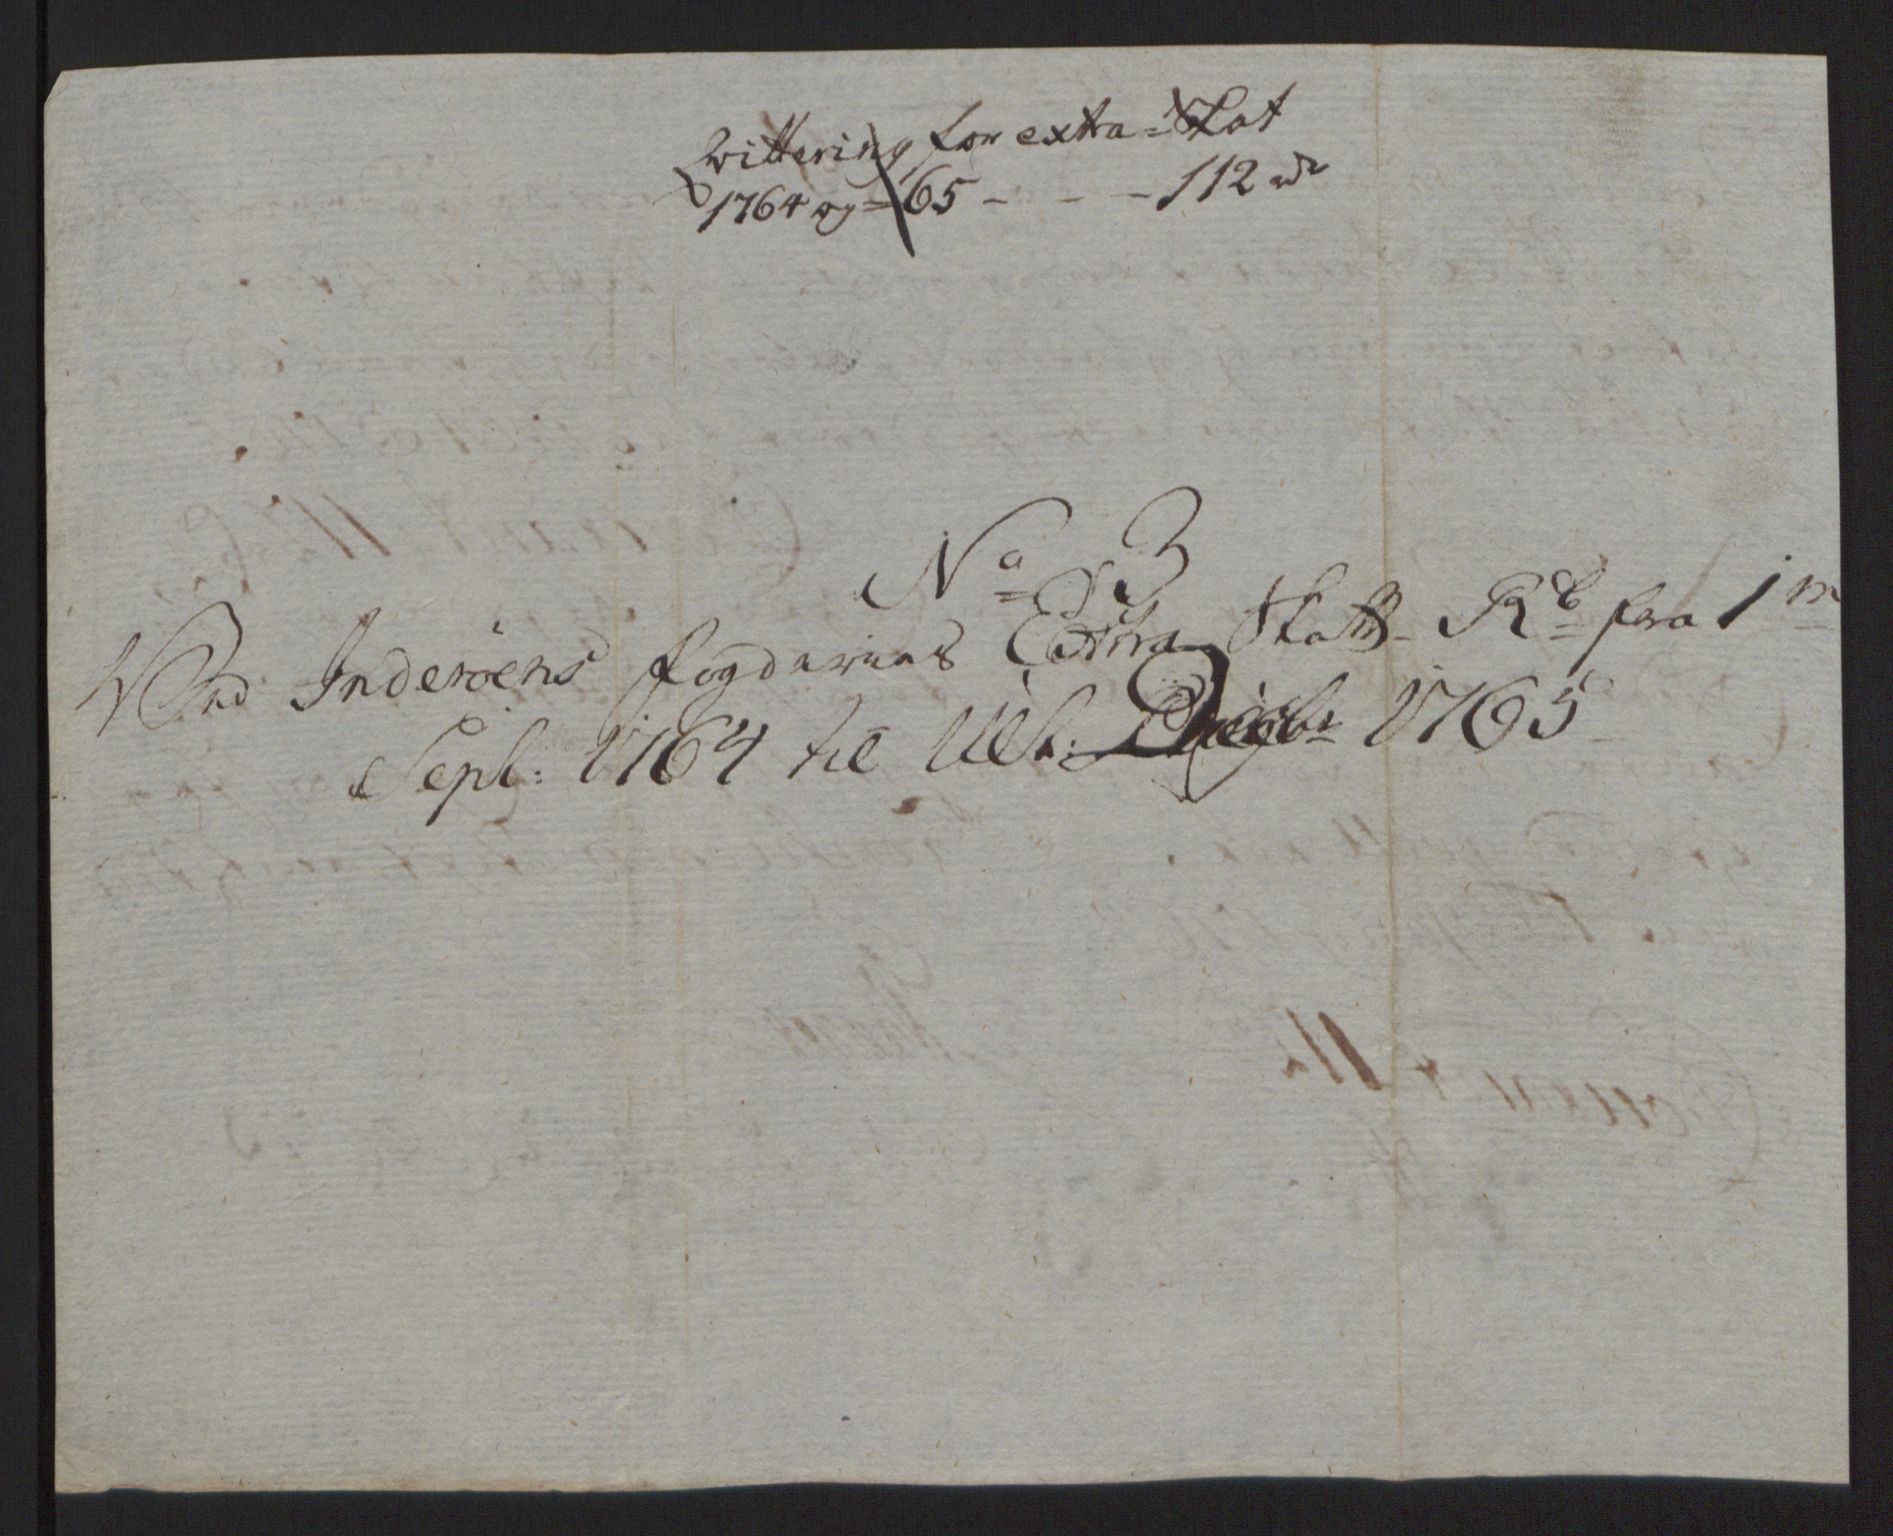 Qvittering for extra=Skat
1764 og=65 - - - 112 rdr
No 3
Ved Inderöens fogderies Extra Skatt Rb fra 1m
Sept: 1764 til Ult: 1765